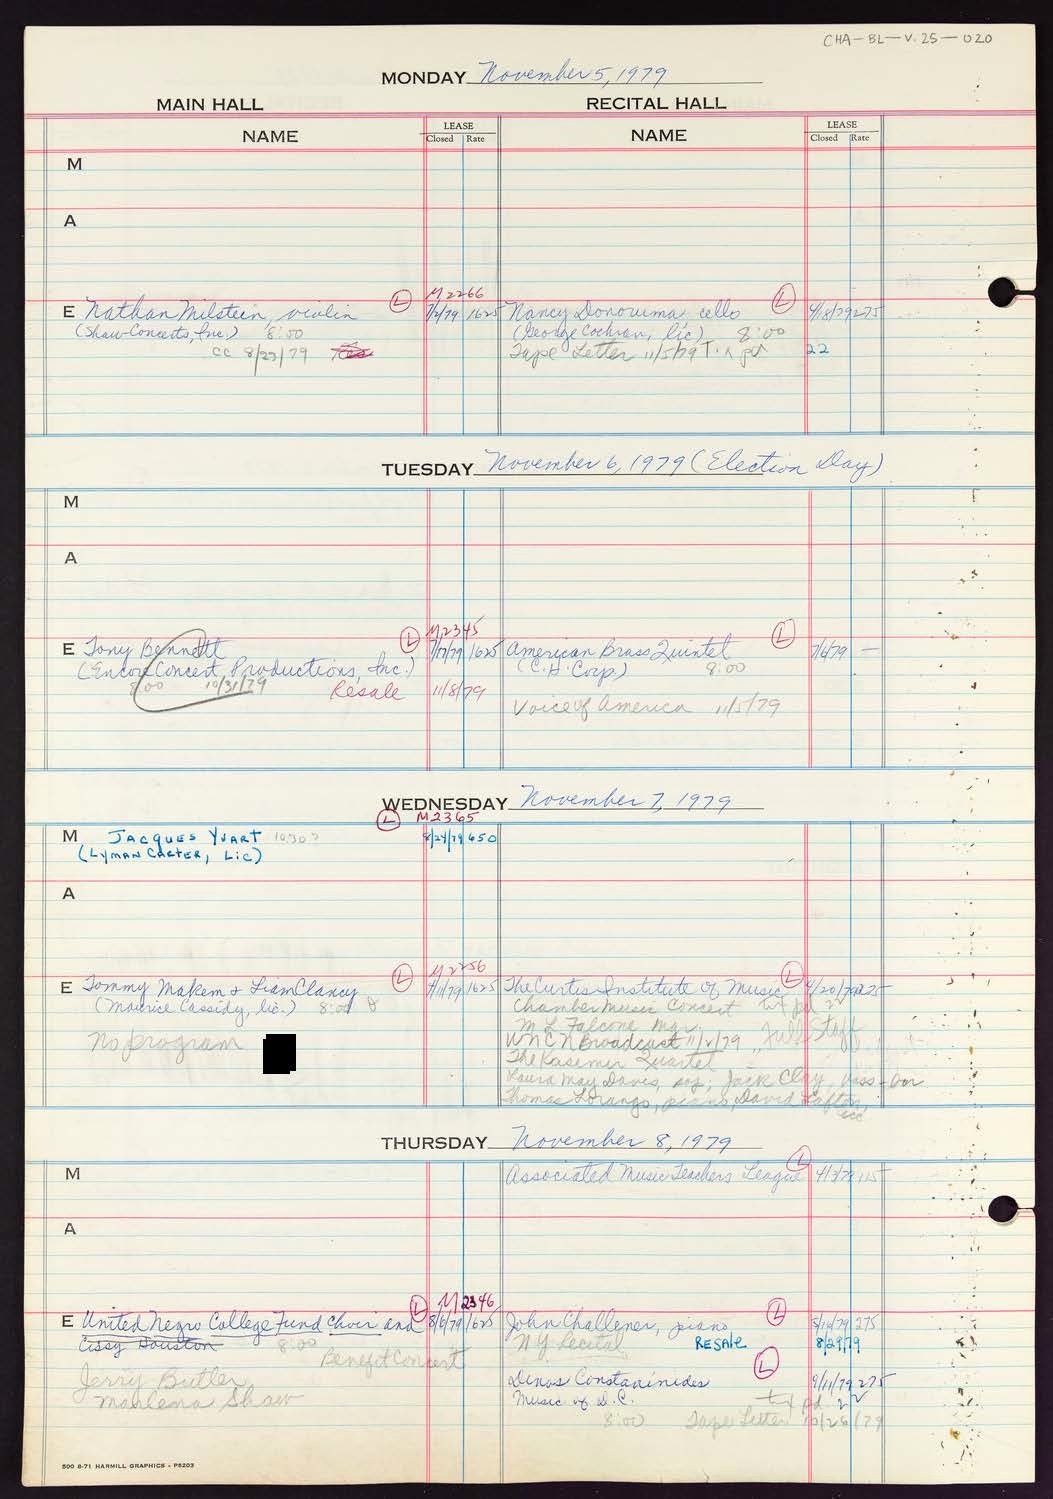 CHA-BL-V.25-020
MONDAY November 5, 1979
MAIN HALL RECITAL HALL
NAME LEASE Closed Rate NAME LEASE Closed Rate
M
A
M2266
E Nathan Milstein, violin L 7/2/79 1625 Nancy Donowma cello L 4/18/79 275
(Shaw Concerts, Inc.) 8:00 (George Cochran, lic) 8:00
cc 8/23/79 Tape Letter 11/5/79 22
TUESDAY November 6, 1979 (Election Day)
M
A
M2345
E Tony Bennett L 7/17/79 1625 American Brass Quintet L 7/6/79 —
(Encore Concert Productions, Inc.) (C.H. Corp.) 8:00
8:00 10/31/79 Resale 11/8/79
Voice of America 11/5/79
WEDNESDAY November 7, 1979
L M2365
M JACQUES YVART 10:30 ? 8/24/79 650
(LYMAN CARTER, LIC)
A
M2256
E Tommy Makem & Liam Clancy L 7/11/79 1625 The Curtis Institute of Music L 4/20/79 225
(Maurice Cassidy, lic.) 8:00 Chamber Music Concert txt pd 22
M L Falcone Mgr.
No program WNCN Broadcast 11/2/79 Full Staff
The Kasemir Quartet
Laura May Davis, sop; Jack Clay, bass-bar
Thomas Lorango, piano, David
THURSDAY November 8, 1979
M Associated Music Teachers League L 4/3/79 115
A
M2346
E United Negro College Fund Choir and L 8/6/79 1625 John Challener, piano L 5/14/79 275
Cissy Houston 8:00 NY Recital RESALE 8/29/79
Benefit Concert
Jerry Butler Dinos Constantinides L 9/11/79 275
Marlena Shaw Music of D.C. txt pd. 22
8:00 Tape Letter 10/26/79
500 8-71 HARMILL GRAPHICS - P5203